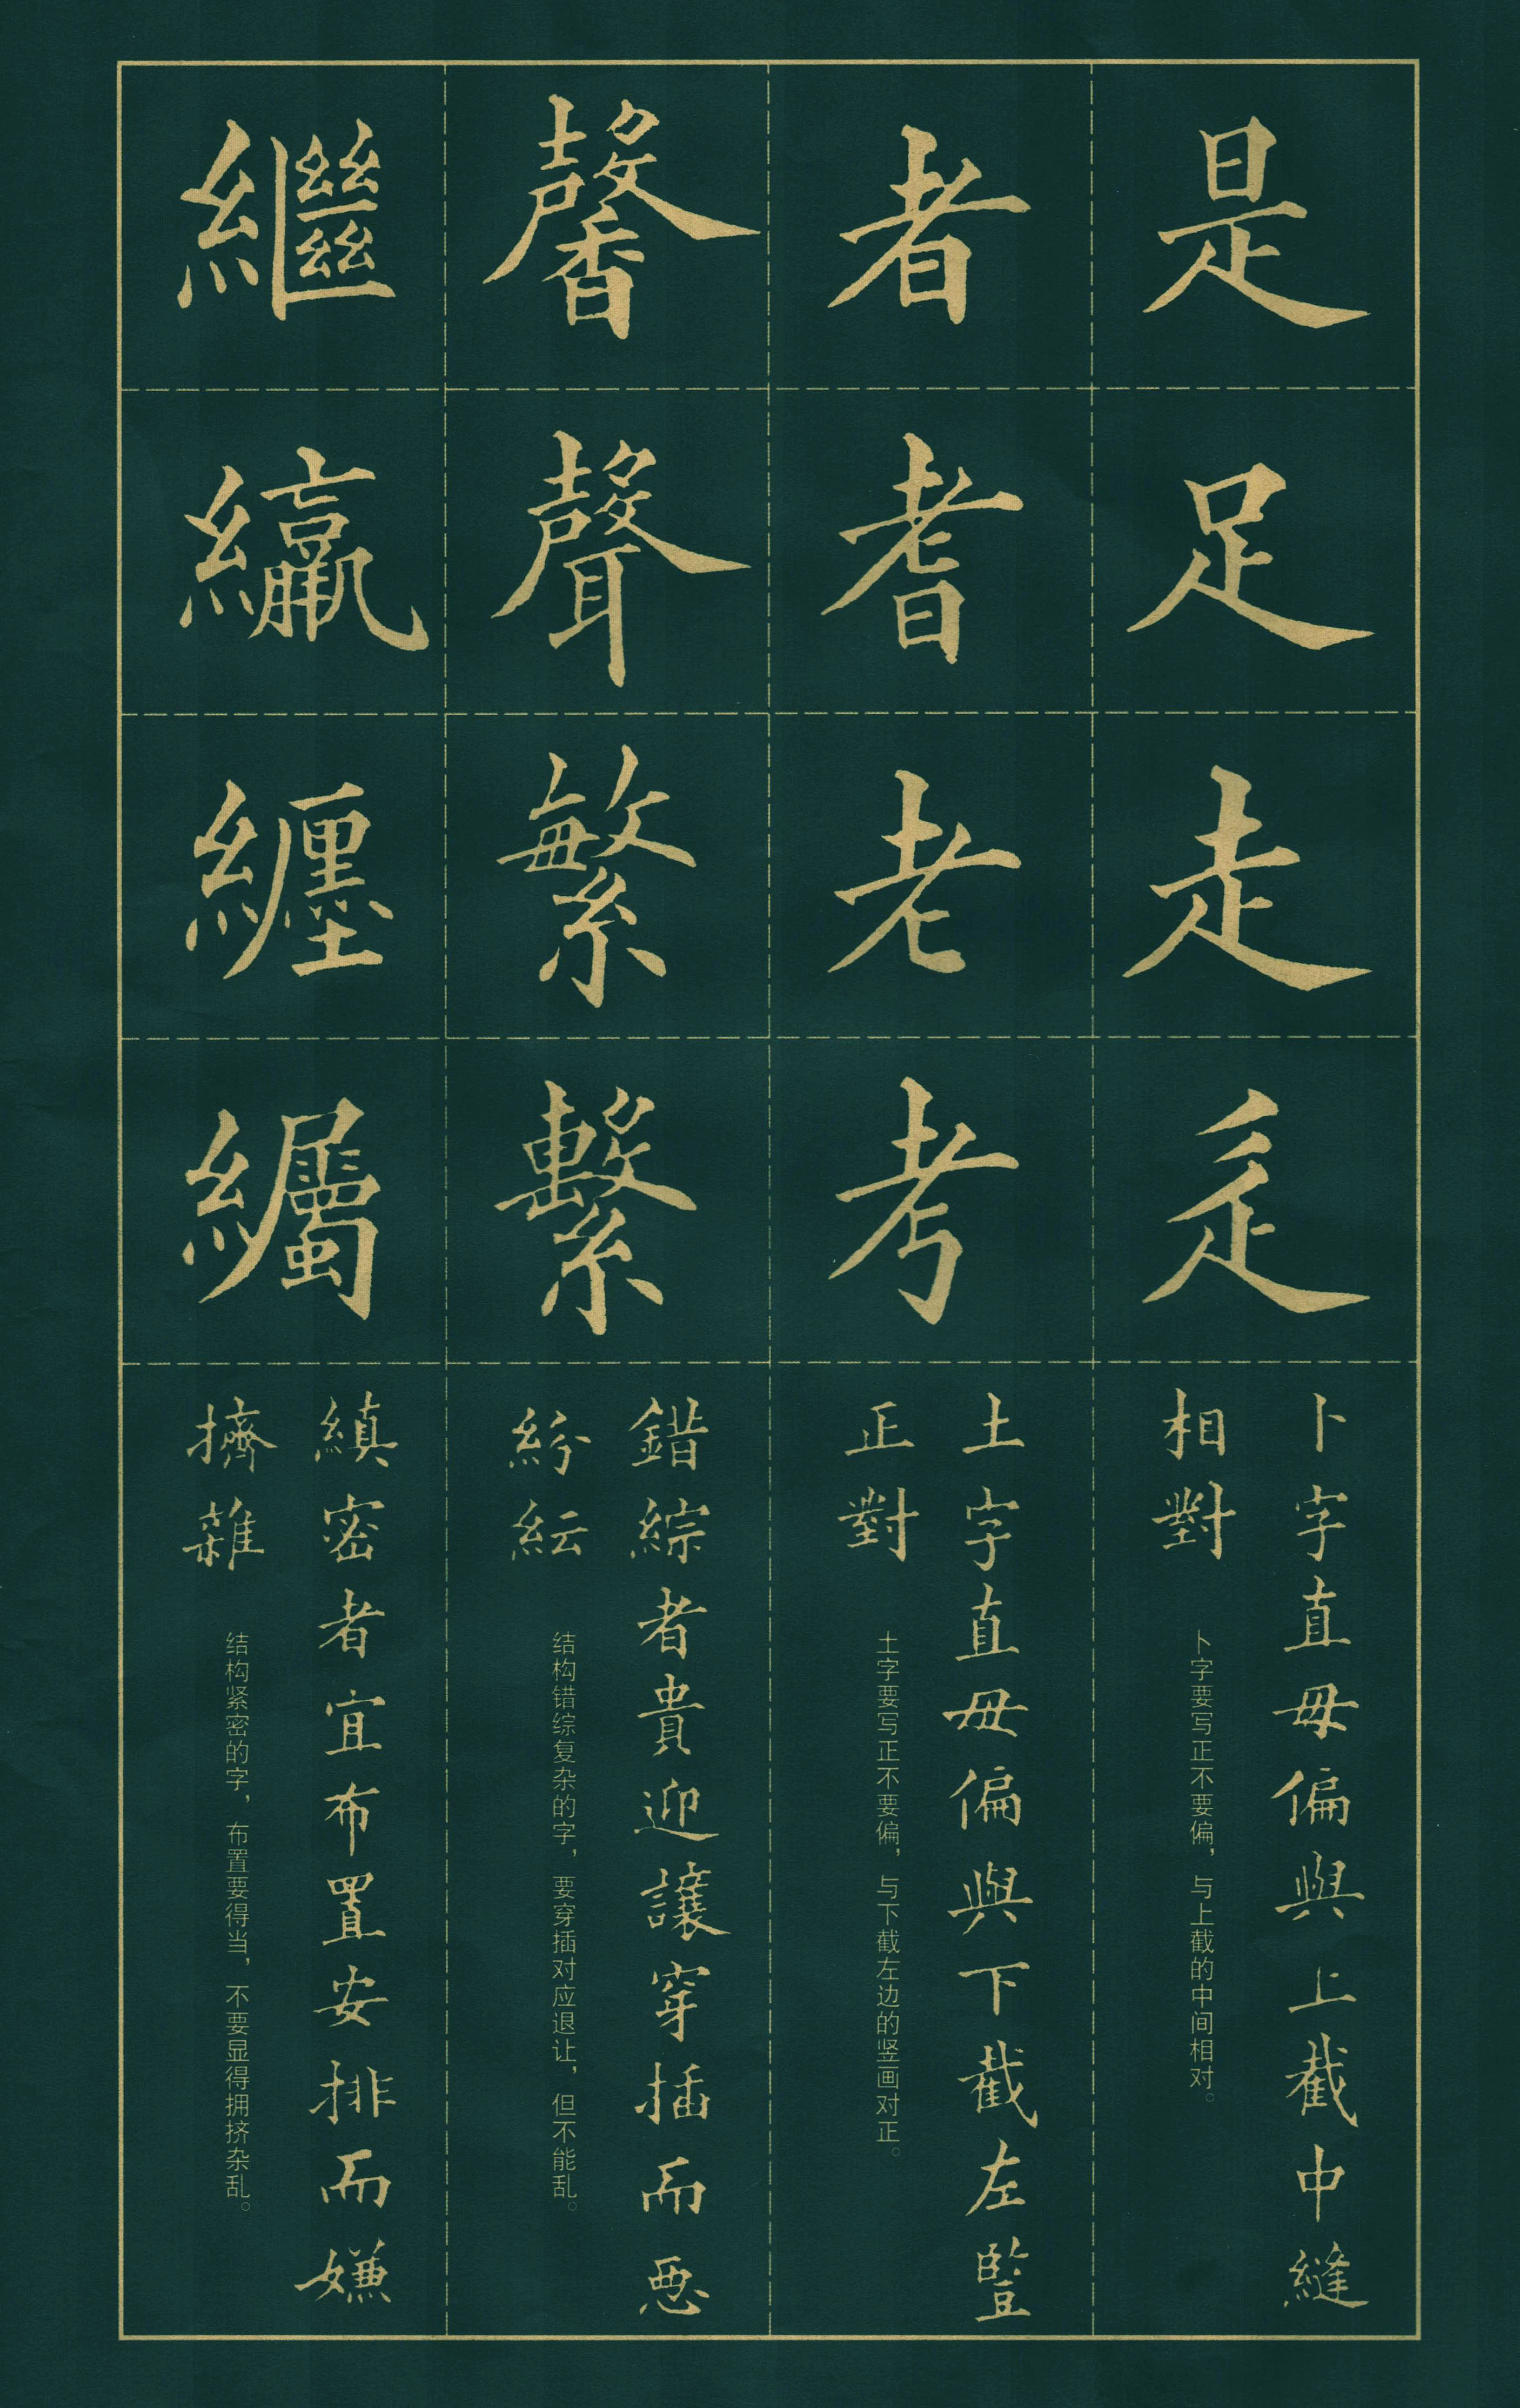 是
足
走
辵
卜字直毋偏與上截中縫
相對
卜字要写正不要偏，与上截的中间相对。
者
耆
老
考
土字直毋偏與下截左豎
正對
土字要写正不要偏，与下截左边的竖画对正。
馨
聲
繁
繫
錯綜者貴迎讓穿插而惡
紛紜
结构错综复杂的字，要穿插对应退让，但不能乱。
繼
纏
縝密者宜布置安排而嫌
擠雜
结构紧密的字，布置要得当，不要显得拥挤杂乱。